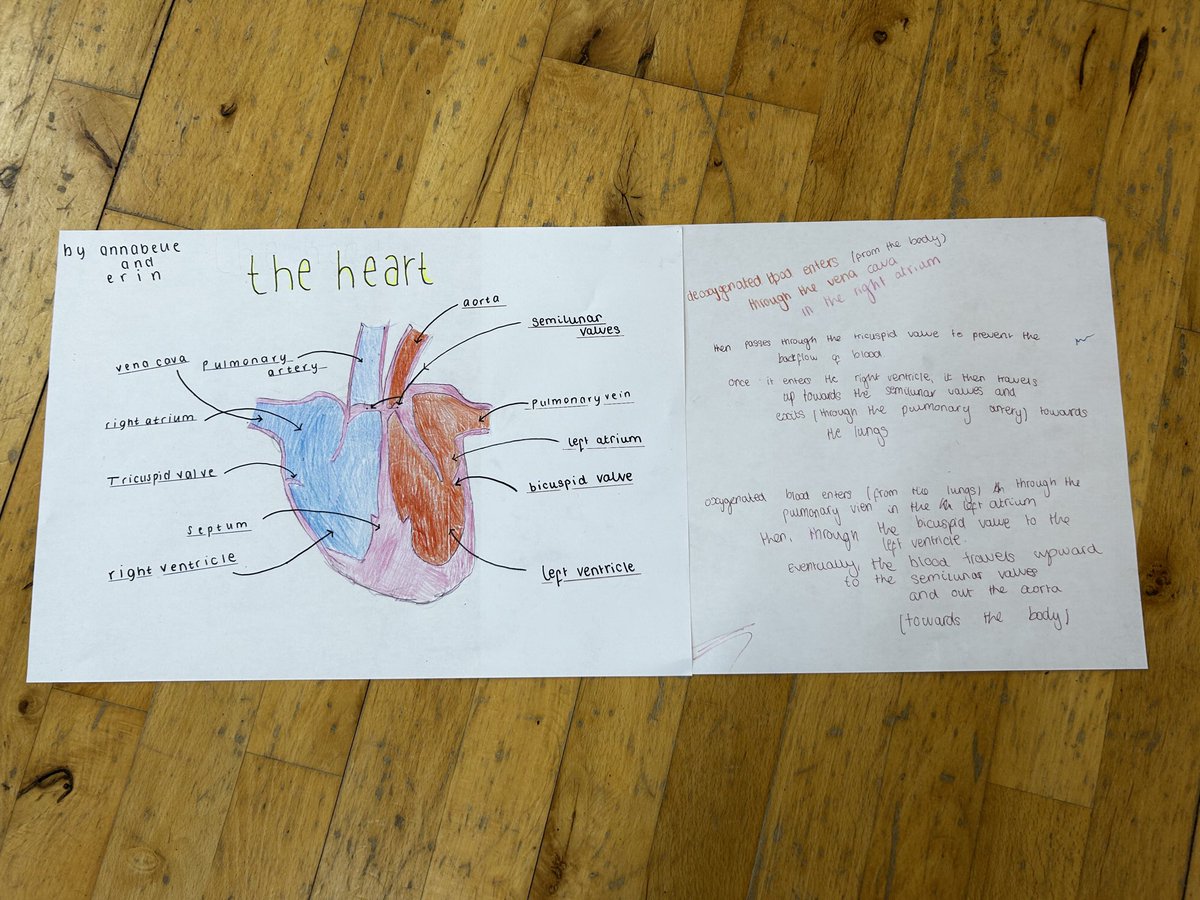 by annabelle
and
erin
the heart
aorta
semilunar
valves
vena cava
pulmonary
artery
pulmonary vein
right atrium
left atrium
Tricuspid valve
bicuspid valve
septum
right ventricle
left ventricle
deoxygenated blood enters (from the body)
through the vena cava
in the right atrium
then passes through the tricuspid valve to prevent the
backflow of blood
once it enters the right ventricle, it then travels
up towards the semilunar valves and
exits (through the pulmonary artery) towards
the lungs
oxygenated blood enters (from the lungs) through the
pulmonary vien in the left atrium
then, through the bicuspid valve to the
left ventricle.
Eventually, the blood travels upward
to the semilunar valves
and out the aorta
(towards the body)